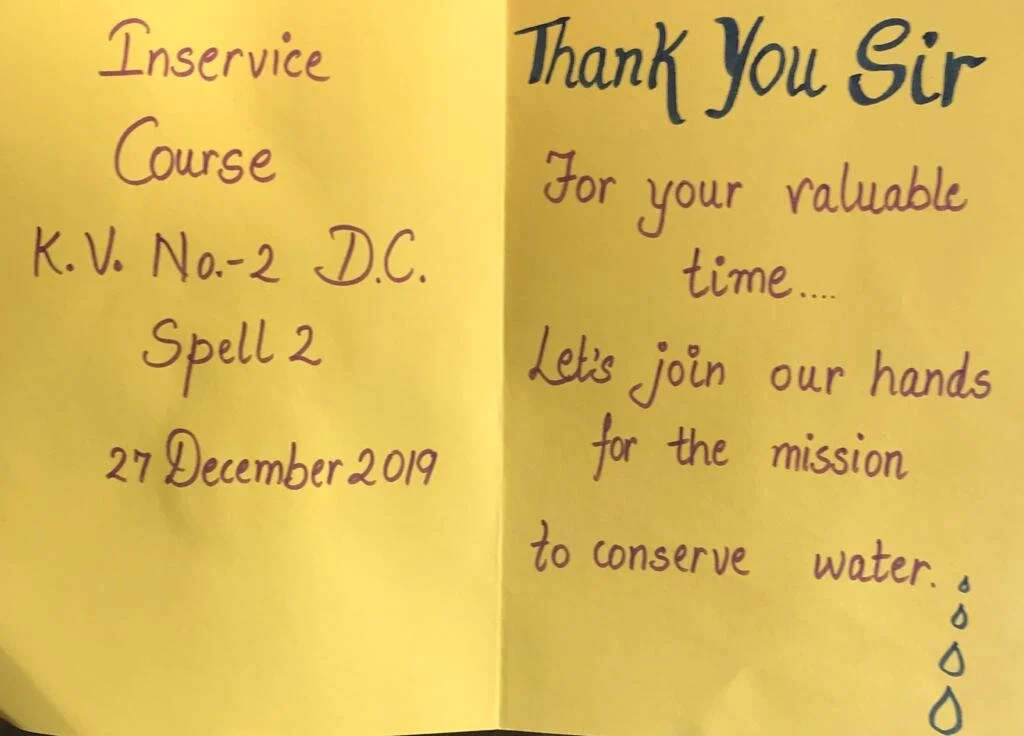 Inservice
Course
K.V. No.-2 D.C.
Spell 2
27 December 2019
Thank You Sir
For your valuable
time....
Let's join our hands
for the mission
to conserve water.